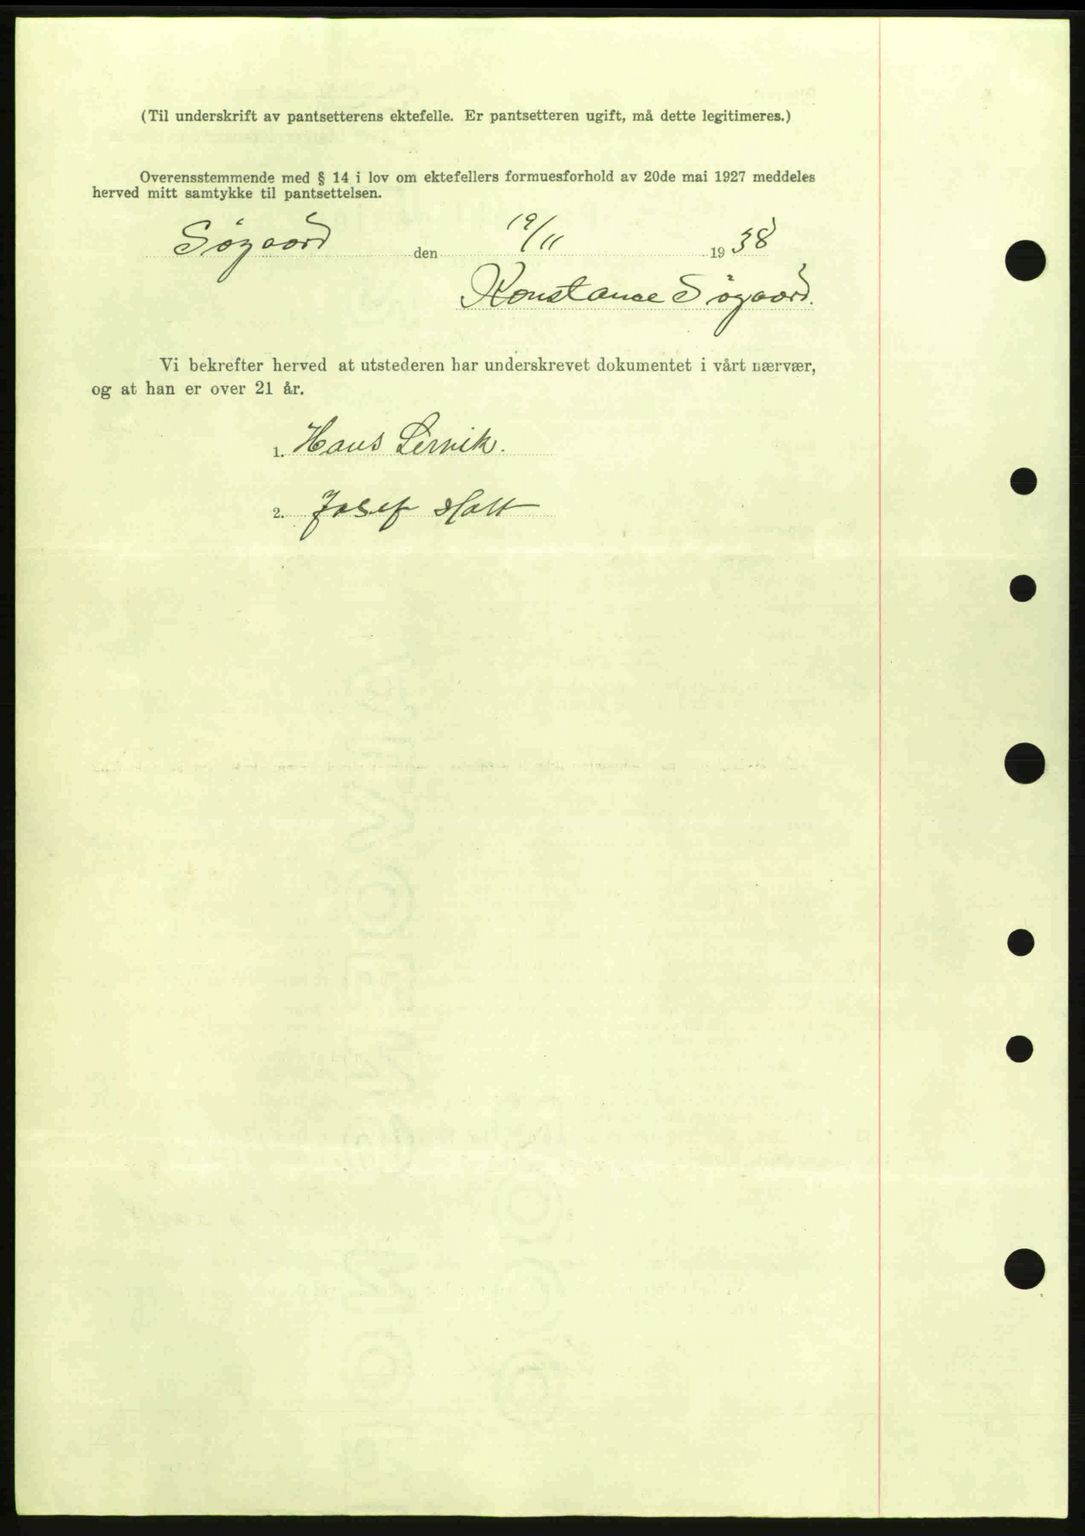 (Til underskrift av pantsetterens ektefelle. Er pantsetteren ugift, må dette legitimeres.)
Overensstemmende med § 14 i lov om ektefellers formuesforhold av 20de mai 1927 meddeles
herved mitt samtykke til pantsettelsen.
Søgaard den 19/11 1938
Konstanse Søgaard.
Vi bekrefter herved at utstederen har underskrevet dokumentet i vårt nærvær,
og at han er over 21 år.
1. Hans Lervik.
2. Josef Hatt